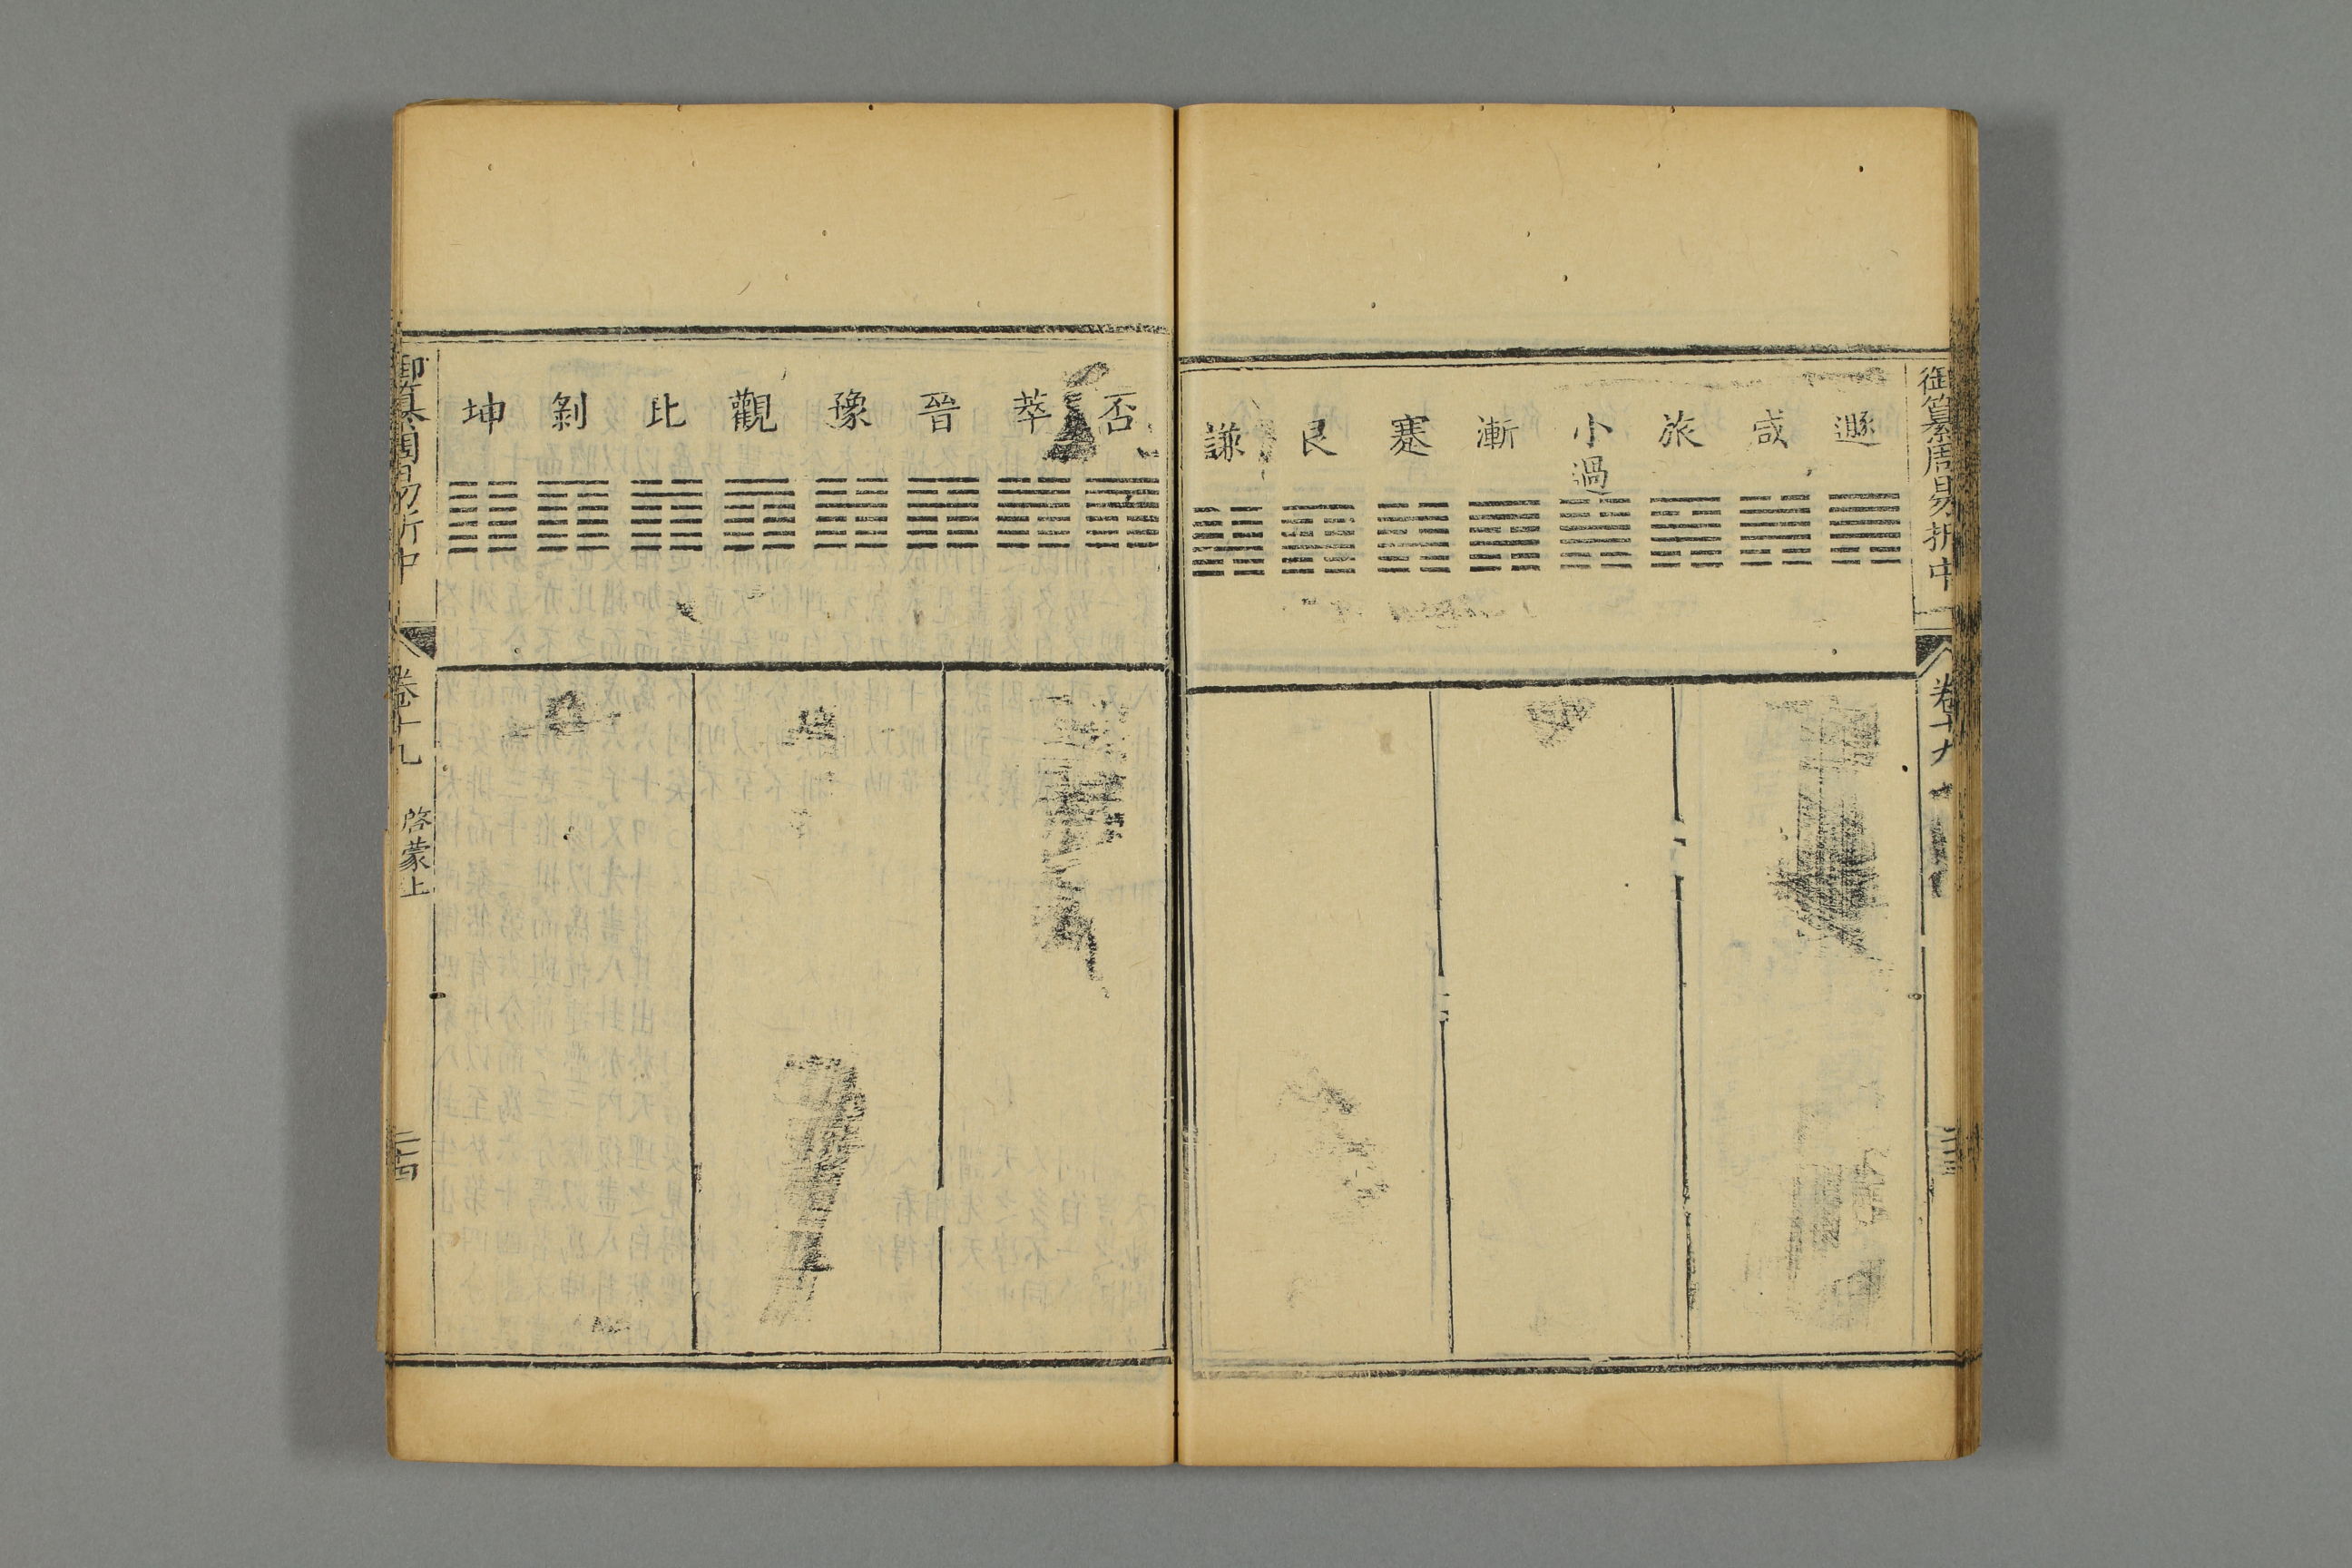 御纂周易折中
卷十九
二十三
遯
咸
旅
小過
漸
蹇
艮
謙
否
萃
晉
豫
觀
比
剝
坤
御纂周易折中
卷十九
啓蒙上
二十四